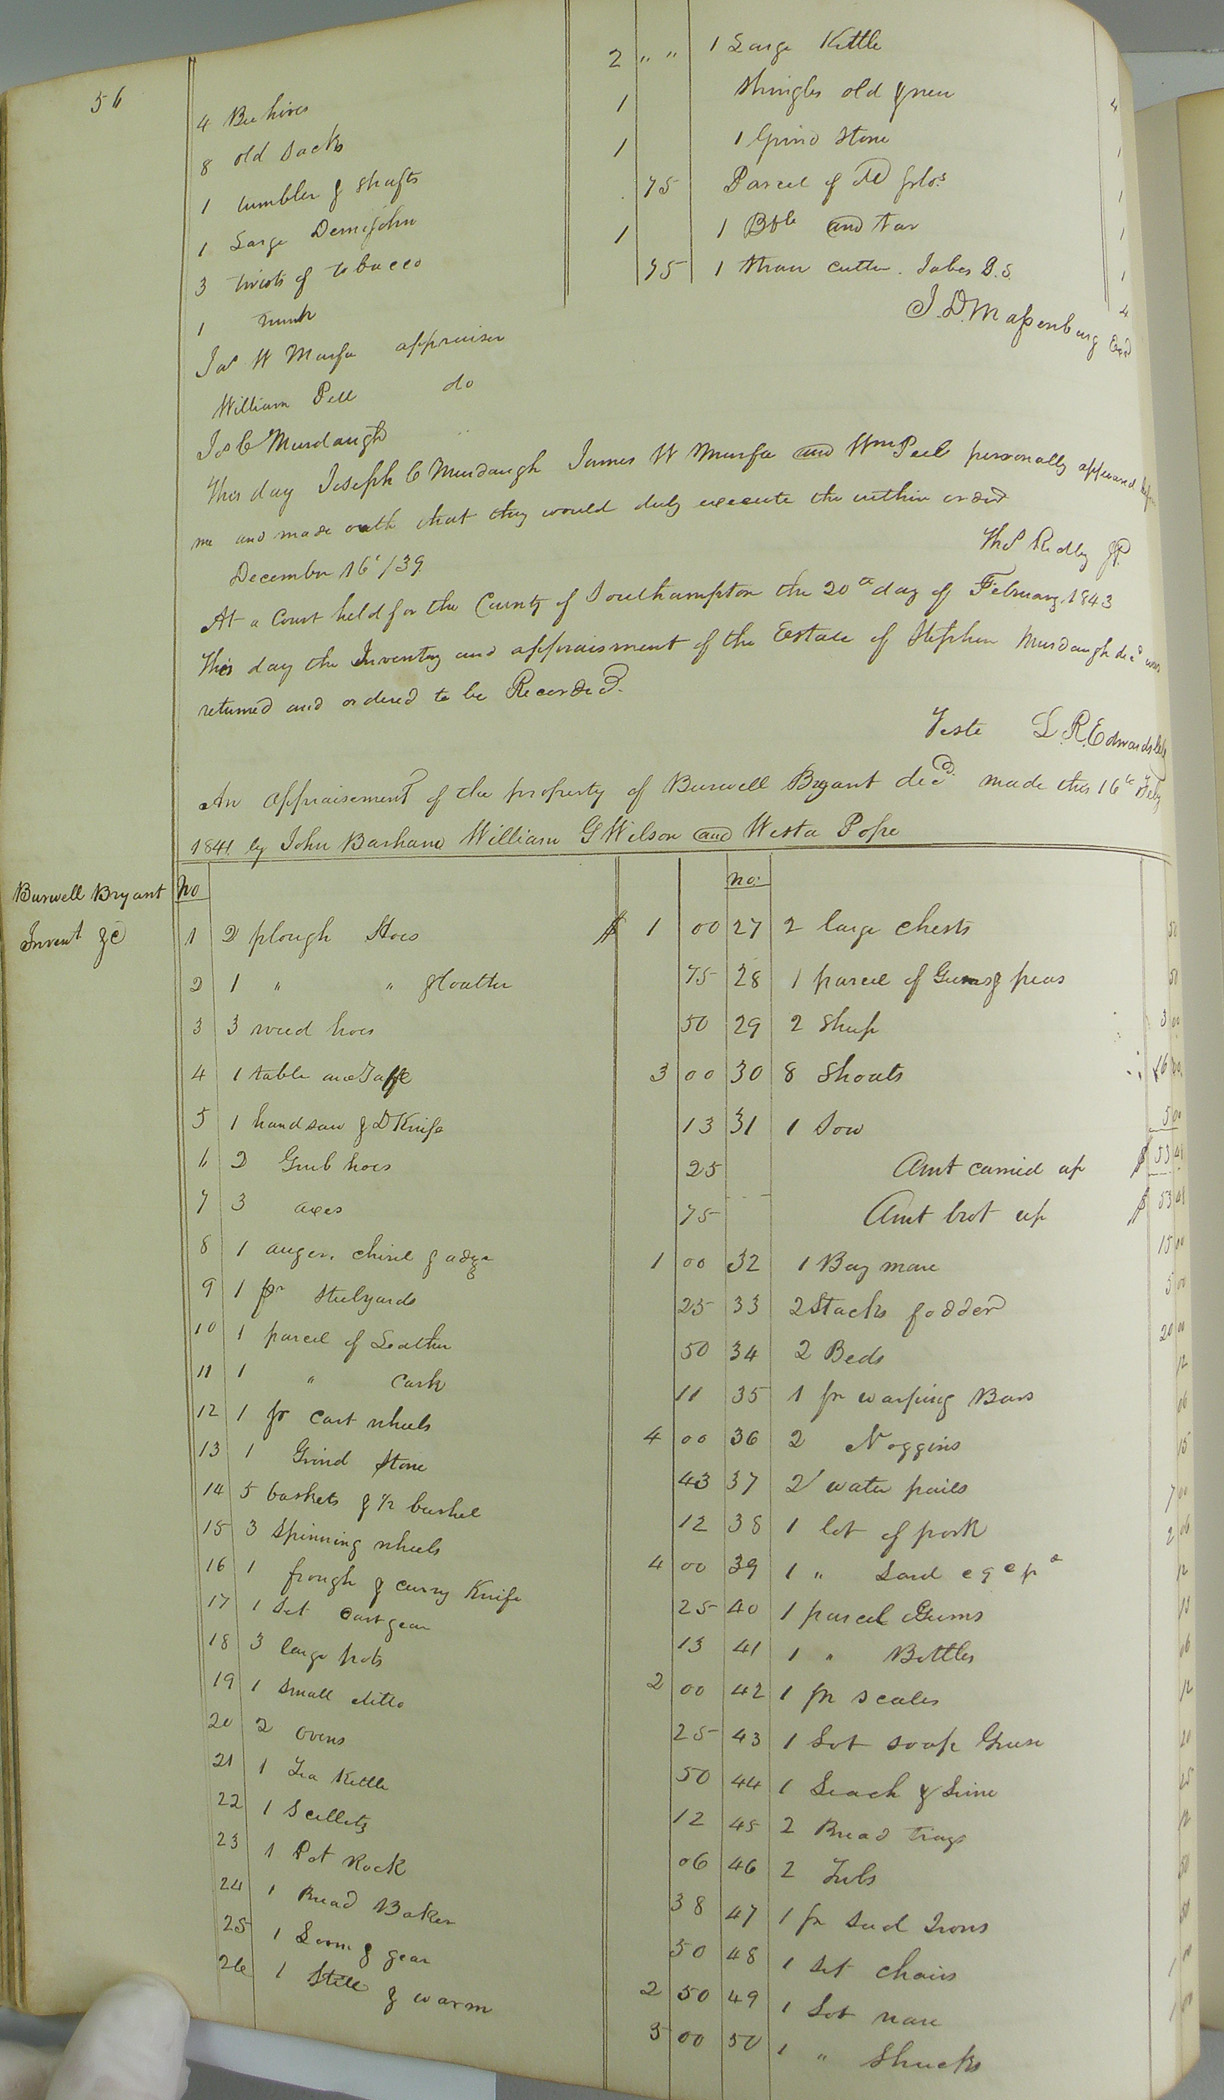 56
4 Bee hives 2 " " 1 Large Kettle
8 old Sacks 1 Shingles old & new 4
1 tumbler & Shafts 1 1 Grind Stone 1
1 Large Demijohn 75 Parcel of old
3 twists of tobacco 1 1 Bble and tar 1
1 trunk 75 1 Straw cutter. 1
J. D. Massenburg
Jas W Murfee appraiser
William Pell do
Jos C Murdaugh
This day Joseph C Murdaugh James W Murfee and Wm Peele personally appeared
me and made oath that they would duly execute the within order
December 16t /39 Thos Ridley JP.
At a Court held for the County of Southampton the 20th day of February 1843
This day the Inventory and appraisment of the Estate of Stephen Murdaugh decd was
returned and ordered to be Recorded.
Teste L. R. Edwards
An appraisement of the property of Burwell Bryant decd. made this 16th
1841 by John Barham William G Wilson and Westa Pope
Burwell Bryant
Invent &c
no no.
1 2 plough Hoes $ 1 00 27 2 large chests 50
2 1 " " & Coulter 75 28 1 parcel of Gums & peas 50
3 3 weed hoes 50 29 2 Sheep 3 00
4 1 table and 3 00 30 8 Shoats 16 00
5 1 hand saw & D Knife 13 31 1 Sow 5 00
6 2 Grub hoes 25 Amt carried up $ 53 48
7 3 axes 75 Amt brot up $ 53 48
8 1 auger, chisel & adze 1 00 32 1 Bay mare 15 00
9 1 pr Steelyards 25 33 2 Stacks fodder 5 00
10 1 parcel of Leather 50 34 2 Beds 20 00
11 1 " Cork 11 35 1 pr warping Bars 12
12 1 pr Cart wheels 4 00 36 2 Noggins 06
13 1 Grind Stone 43 37 2 water pails 15
14 5 baskets & 1/2 bushel 12 38 1 lot of pork 7 00
15 3 Spinning wheels 4 00 39 1 " Lard 2 06
16 1 frough & curry Knife 25 40 1 parcel Gums 12
17 1 Set Cart gear 13 41 1 " Bottles 13
18 3 large pots 2 00 42 1 pr scales 06
19 1 small ditto 25 43 1 Lot soap Grease 12
20 2 ovens 50 44 1 Leach & Lime 20
21 1 Tea Kettle 12 45 2 Bread trays 25
22 1 Scillets 06 46 2 Tubs 12
23 1 Pot Rack 38 47 1 pr Sad Irons 50
24 1 Bread Baker 50 48 1 set chairs 50
25 1 Loom & gear 2 50 49 1 Lot ware 1 00
26 1 Still & warm 5 00 50 1 " Shucks